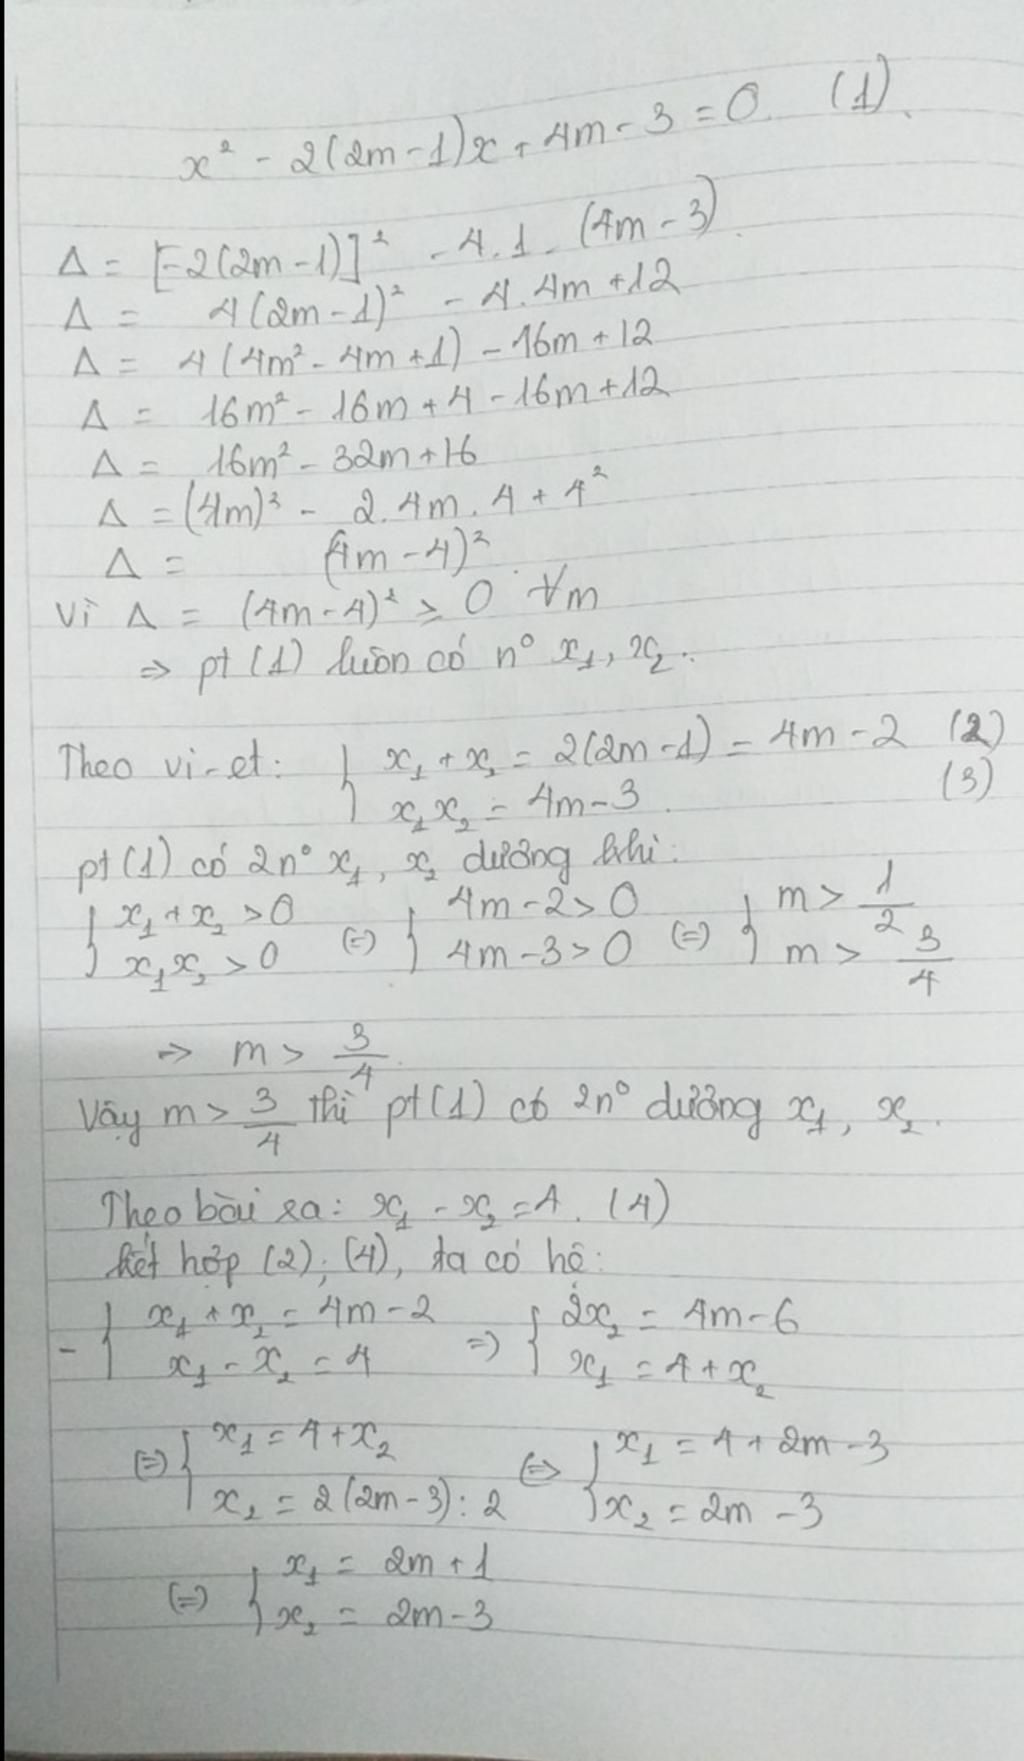 x² - 2(2m-1)x + 4m - 3 = 0. (1).
Δ = [-2(2m-1)]² - 4.1.(4m-3).
Δ = 4(2m-1)² - 4.4m + 12
Δ = 4(4m² - 4m + 1) - 16m + 12
Δ = 16m² - 16m + 4 - 16m + 12
Δ = 16m² - 32m + 16
Δ = (4m)² - 2.4m.4 + 4²
Δ = (4m-4)²
Vì Δ = (4m-4)² ≥ 0 ∀m
⇒ pt (1) luôn có n° x₁, x₂.
Theo vi-et: { x₁ + x₂ = 2(2m-1) = 4m - 2 (2)
x₁x₂ = 4m - 3. (3)
pt (1) có 2n° x₁, x₂ dương khi:
{ x₁ + x₂ > 0 (=) { 4m - 2 > 0 (=) { m > 1/2
x₁x₂ > 0 4m - 3 > 0 m > 3/4
⇒ m > 3/4.
Vậy m > 3/4 thì pt (1) có 2n° dương x₁, x₂.
Theo bài ra: x₁ - x₂ = 4. (4)
kết hợp (2), (4), ta có hệ:
- { x₁ + x₂ = 4m - 2 =) { 2x₂ = 4m - 6
x₁ - x₂ = 4 x₁ = 4 + x₂
(=) { x₁ = 4 + x₂ (=) { x₁ = 4 + 2m - 3
x₂ = 2(2m-3) : 2 x₂ = 2m - 3
(=) { x₁ = 2m + 1
x₂ = 2m - 3